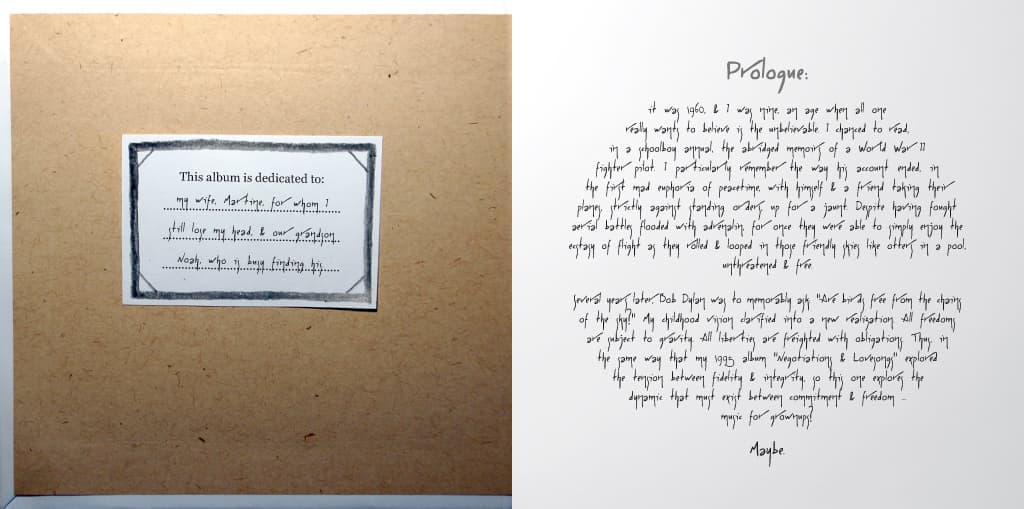 This album is dedicated to:
my wife, Martine, for whom I
still lose my head, & our grandson
Noah, who is busy finding his
Prologue:
it was 1960, & I was nine, an age when all one
really wants to believe is the unbelievable. I chanced to read,
in a schoolboy annual, the abridged memoirs of a World War II
fighter pilot. I particularly remember the way his account ended, in
the first mad euphoria of peacetime, with himself & a friend taking their
planes, strictly against standing orders, up for a jaunt. Despite having fought
aerial battles flooded with adrenalin, for once they were able to simply enjoy the
ecstasy of flight as they rolled & looped in those friendly skies like otters in a pool,
unthreatened & free.
Several years later, Bob Dylan was to memorably ask "Are birds free from the chains
of the sky?" My childhood vision clarified into a new realisation. All freedoms
are subject to gravity. All liberties are freighted with obligations. Thus, in
the same way that my 1995 album "Negotiations & Lovesongs" explored
the tension between fidelity & integrity, so this one explores the
dynamic that must exist between commitment & freedom ...
music for grownups?
Maybe.